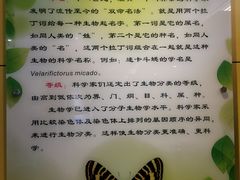 发明了流传至今的“双命名法”。就是用两个拉
丁词给每一种生物起名字。第一词是它的属名,
如同人类的“姓”,第二个是它的种名,如同人
类的“名”,这两个拉丁词组合在一起就是这种
生物的科学名称。例如,迷卡斗蟋的学名是
Valarifictorus micado.
等级:科学家们还定出了生物分类的等级,
由高到低依次为界、门、纲、目、科、属、种。
生物学已进入了分子生物学水平,科学家采用
比较染色体及染色体上排列的基因顺序的异同,
来进行生物分类。这样使生物分类更准确、更科
学。